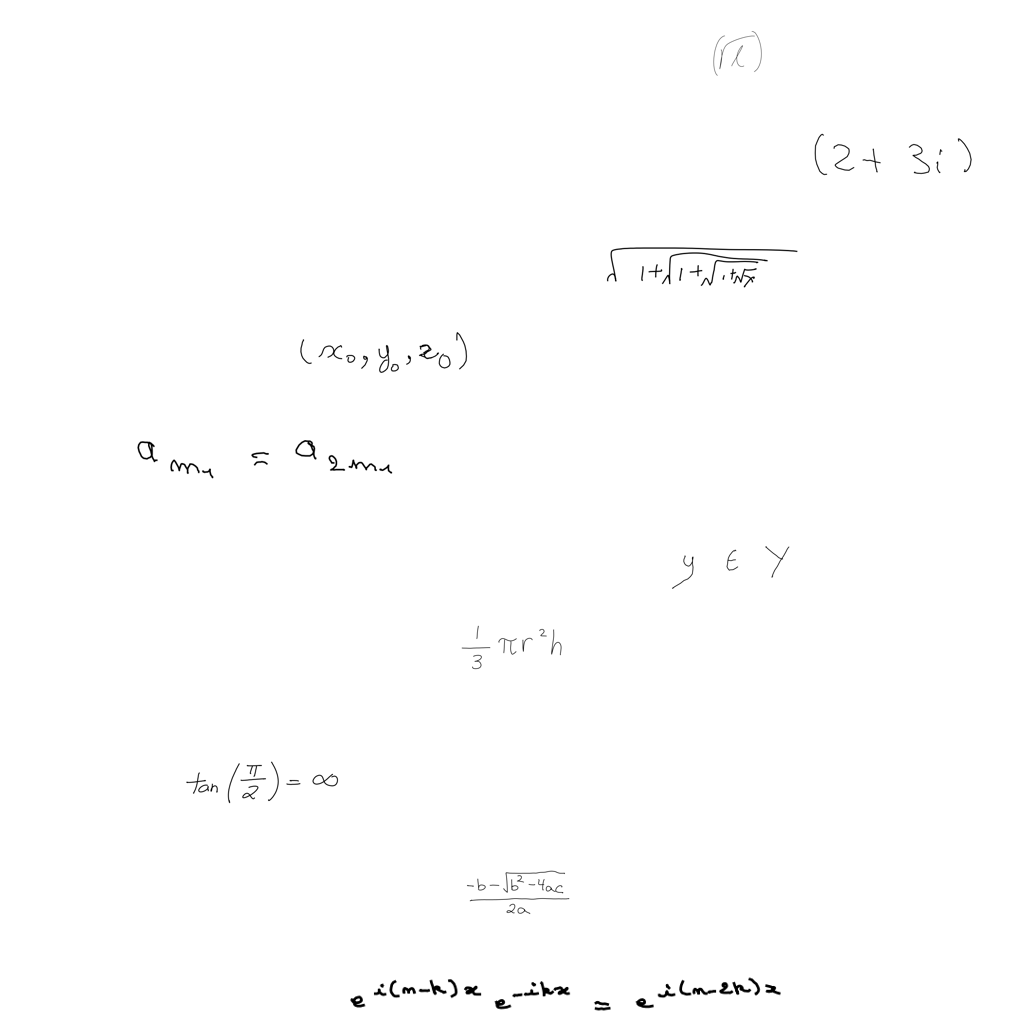 (√x)
(2 + 3i)
√(1+√(1+√(1+√x)))
(x₀, y₀, z₀)
aₘₓ = a₂ₘₓ
y ∈ Y
1/3 πr²h
tan(π/2) = ∞
(-b-√(b²-4ac))/(2a)
e^{i(n-k)x} e^{-ikx} = e^{i(n-2k)x}